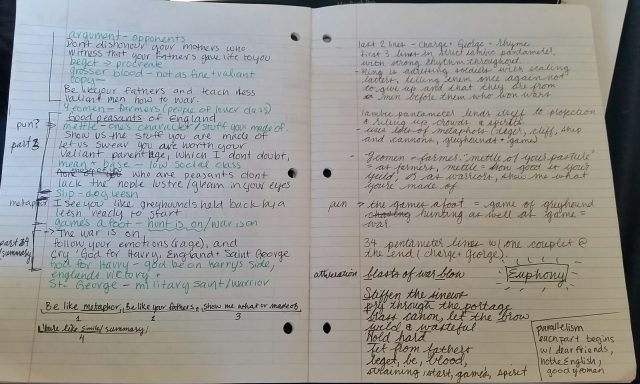 argument - opponents
Don't dishonour your mothers who
witness that your fathers gave life to you
beget → procreate
grosser blood - not as fine + valiant
copy -
Be like your fathers and teach less
valiant men how to war.
yeomen - farmers (people of lower class)
good peasants of England
mettle - one's character / stuff you made of
Show us the stuff you are made of
let us swear you are worth your
valiant parentage, which I don't doubt,
mean + base - low social class
who are peasants don't
lack the noble lustre/gleam in your eyes
slip - dog leesh
I see you like greyhounds held back by a
leesh ready to start
games a foot - hunt is on/war is on
The war is on
Follow your emotions (rage), and
Cry 'God for Harry, England + Saint George
God for Harry - god be on harry's side,
englands victory +
St. George - military saint/warrior
pun?
part 3
metaphor
part
summary
Be like metaphor, Be like your fathers, show me what or made of,
1 2 3
You're like simile/summary
4
last 2 lines - charge + George - Rhyme
First 3 lines in strict iambic pantameter,
with strong rhythm throughout
King is adressing soldiers when scaling
ladders, telling them once again not
to give up and that they are from
men before them who won wars
Iambic pantameter lends itself to projection
& riling up crowds + spirits
- uses idea of metaphors (tiger, cliff, ship
and cannons, greyhounds + game)
- Yeomen = farmer. "mettle of your pasture"
= as farmers, mettle = show good is your
yeild, or as warriors, show me what
you're made of
pun → the games afoot = game of greyhound
hunting as well as game =
war
34 pentameter lines w/ one couplet @
the end (charge + George).
alliteration
blasts of war blow
Euphony
Stiffen the sinews
pry through the portage
brass canon, let the brow
wild & wasteful
Hold hard
fet from fathers
beget, be, blood,
straining, start, games, spirit
parallelism
each part begins
w/ dear friends,
noble English,
good yeoman